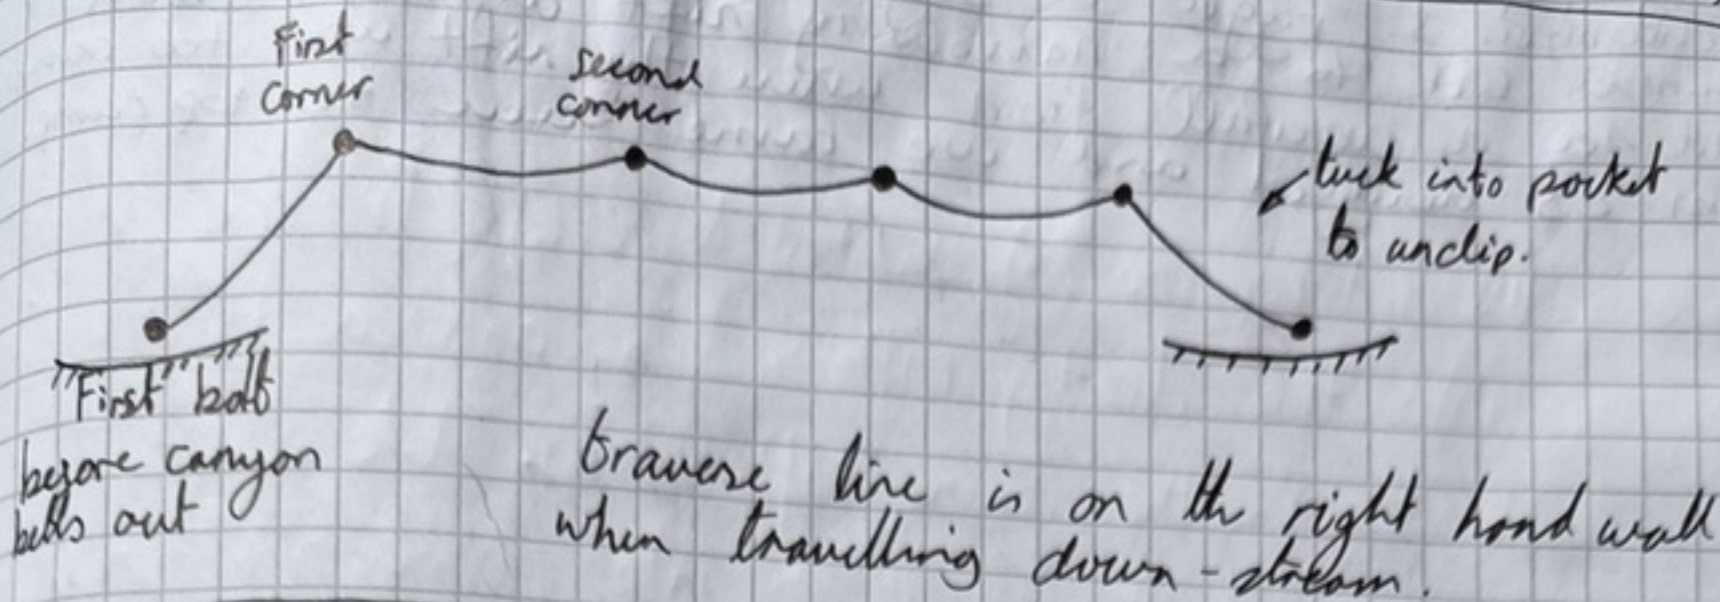 First
corner
second
corner
tuck into pocket
to unclip.
First bolt
before canyon
bells out
traverse line is on the right hand wall
when travelling down-stream.